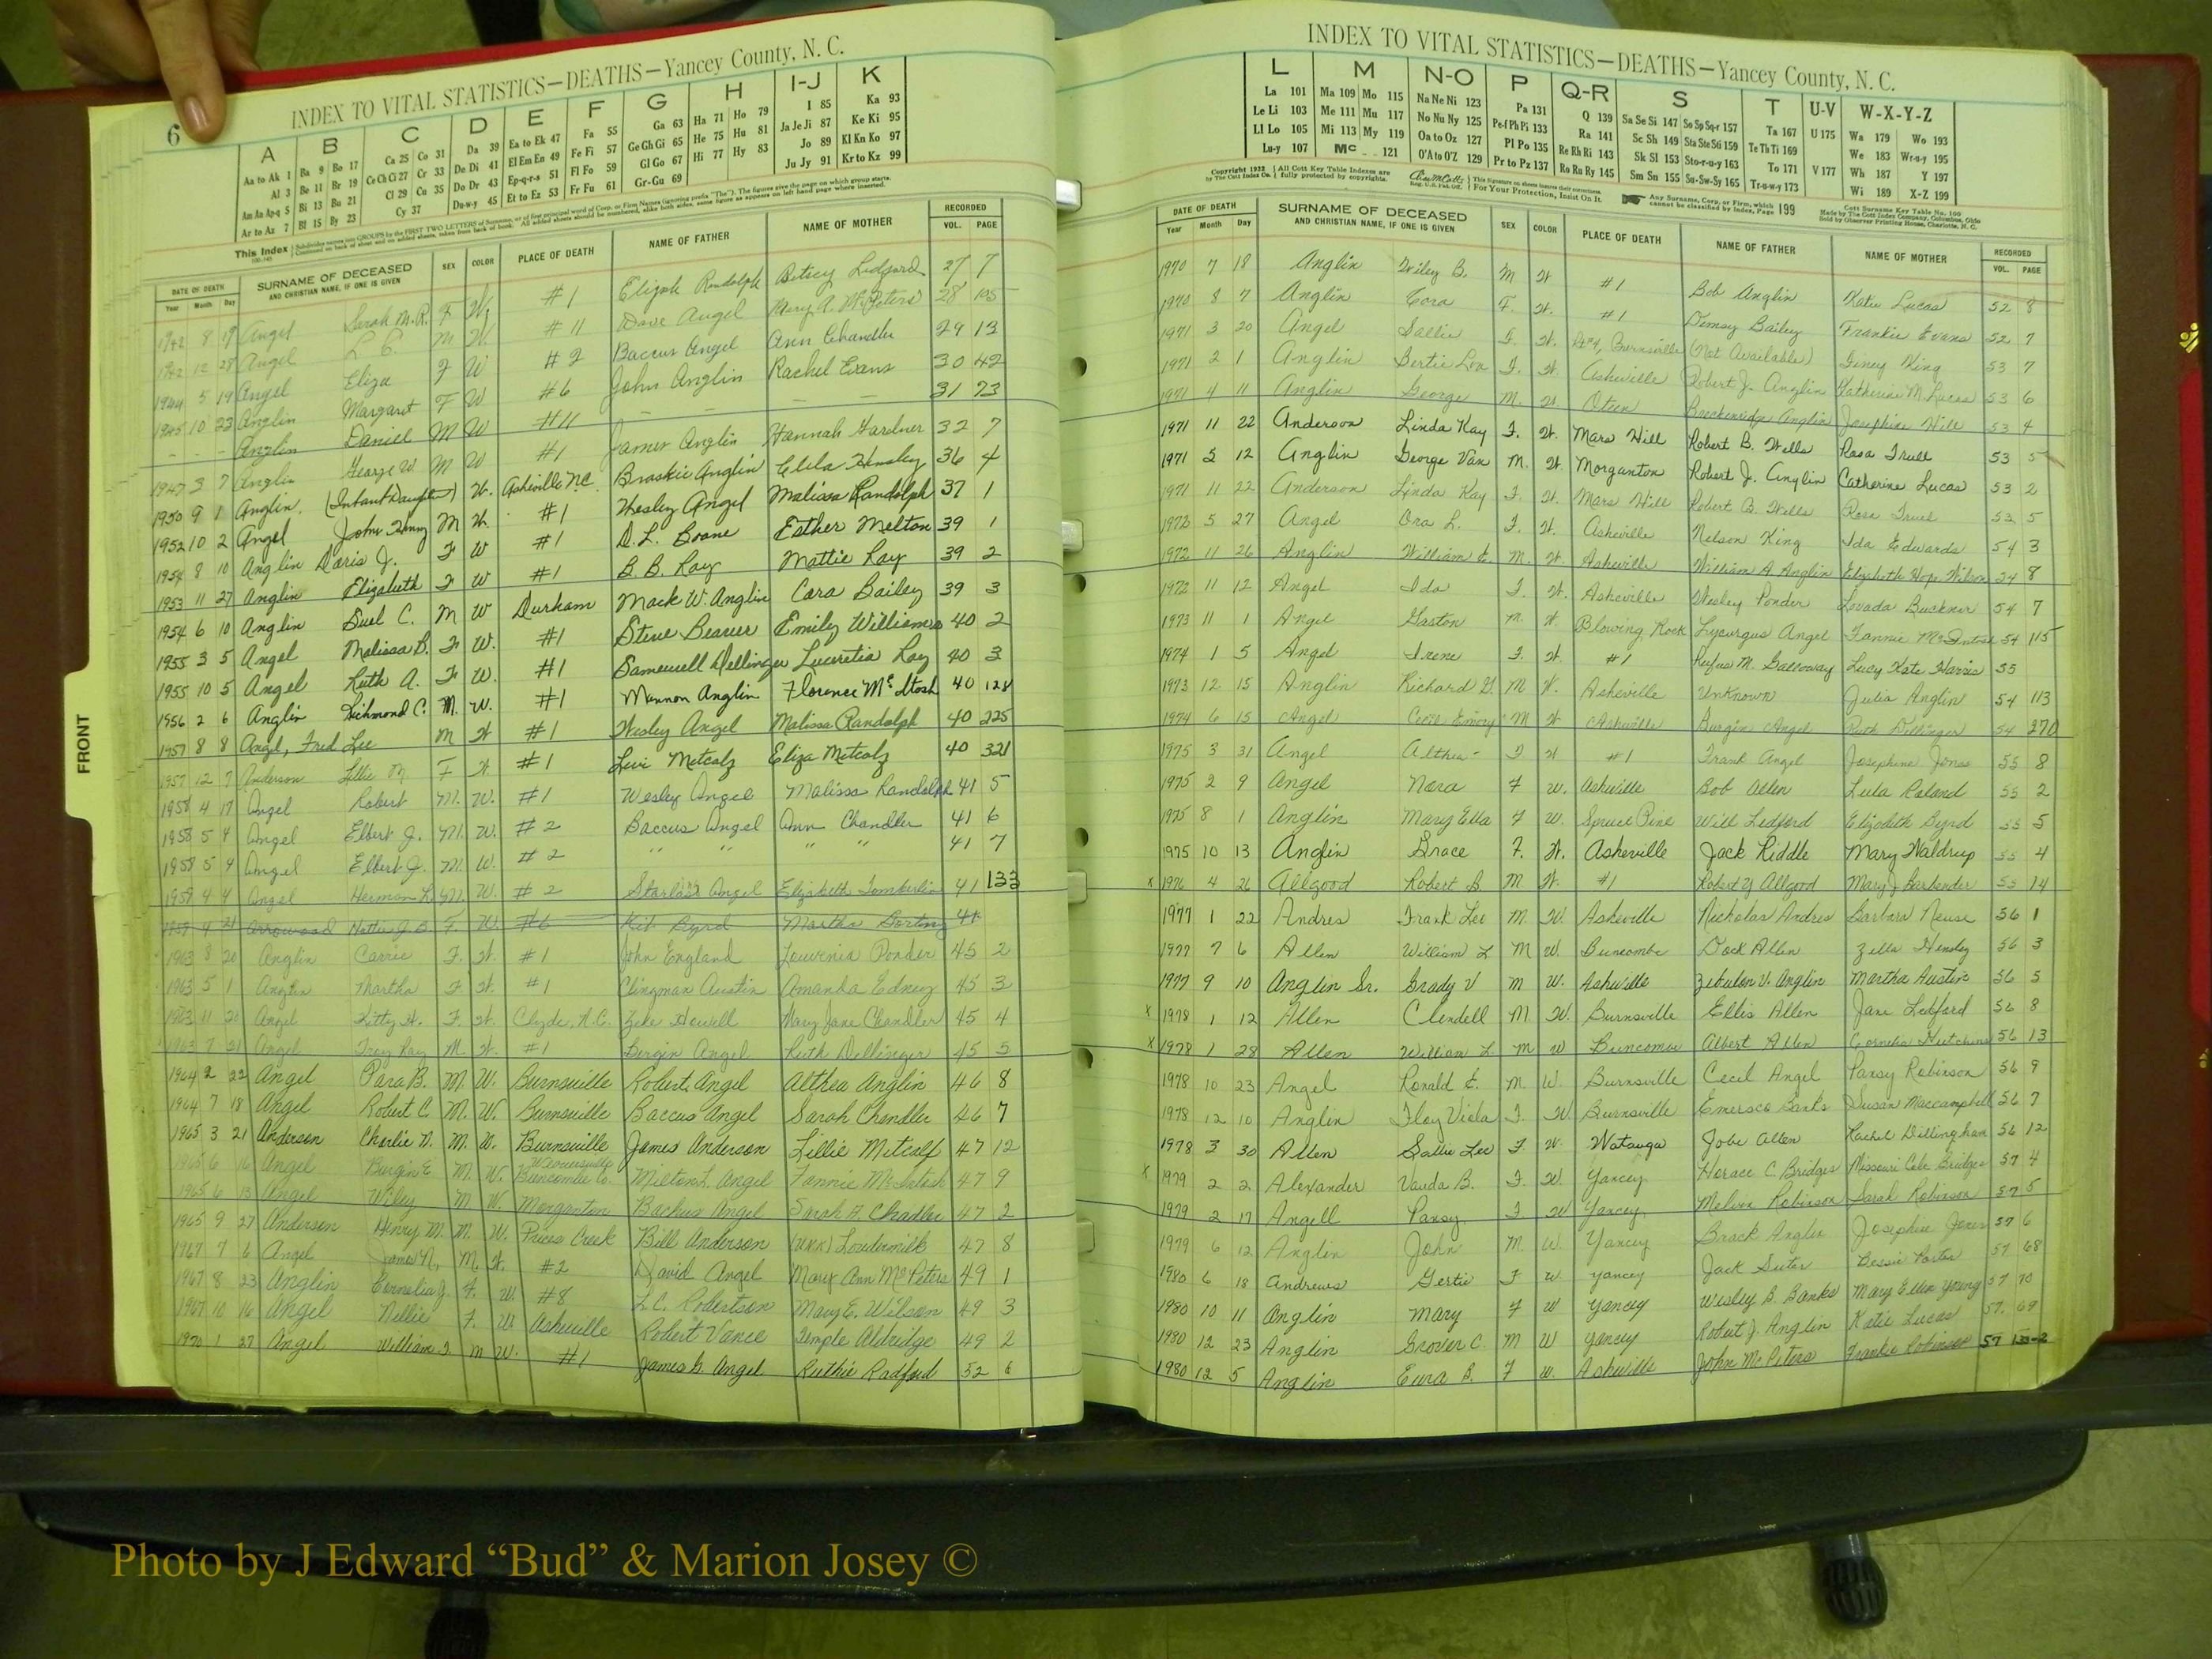 6
INDEX TO VITAL STATISTICS—DEATHS—Yancey County, N. C.
A B C D E F G H I-J K
Aa to Ak 1 Ba 9 Bo 17 Ca 25 Co 31 Da 39 Ea to Ek 47 Fa 55 Ga 63 Ha 71 Ho 79 I 85 Ka 93
Al 3 Be 11 Br 19 Ce Ch Ci 27 Cr 33 De Di 41 El Em En 49 Fe Fi 57 Ge Gh Gi 65 He 75 Hu 81 Ja Je Ji 87 Ke Ki 95
Am An Ap-q 5 Bi 13 Bu 21 Cl 29 Cu 35 Do Dr 43 Ep-q-r-s 51 Fl Fo 59 Gl Go 67 Hi 77 Hy 83 Jo 89 Kl Kn Ko 97
Ar to Az 7 Bl 15 By 23 Cy 37 Du-w-y 45 Et to Ez 53 Fr Fu 61 Gr-Gu 69 Ju Jy 91 Kr to Kz 99
This Index
DATE OF DEATH SURNAME OF DECEASED AND CHRISTIAN NAME, IF ONE IS GIVEN SEX COLOR PLACE OF DEATH NAME OF FATHER NAME OF MOTHER RECORDED
Year Month Day VOL. PAGE
1942 8 19 Angel Sarah M. R. F W #1 Elijah Randolph Betsey Ledford 27 7
1942 12 28 Angel L. C. M W #11 Dave Angel Mary A. McPeters 28 105
1944 5 19 Angel Eliza F W #2 Baccus Angel Ann Chandler 29 13
1945 10 23 Anglin Margaret F W #6 John Anglin Rachel Evans 30 42
- - - Anglin Daniel M W #11 - - - 31 73
1947 3 7 Anglin George W. M W #1 James Anglin Hannah Gardner 32 7
1950 9 1 Anglin (Infant Daughter) W. Asheville N.C. Braskie Anglin Clela Hensley 36 4
1952 10 2 Angel John Henry M W. #1 Wesley Angel Malissa Randolph 37 1
1954 8 10 Anglin Doris J. F W #1 D. L. Boone Esther Melton 39 1
1953 11 27 Anglin Elizabeth F W #1 B. B. Ray Mattie Ray 39 2
1954 6 10 Anglin Duel C. M W Durham Mack W. Anglin Cora Bailey 39 3
1955 3 5 Angel Malissa B. F W. #1 Steve Beaver Emily Williams 40 2
1955 10 5 Angel Ruth A. F W. #1 Samewell Dellinger Lucretia Ray 40 3
1956 2 6 Anglin Richmond C. M. W. #1 Mannon Anglin Florence McIntosh 40 128
1957 8 8 Angel, Fred Lee M W #1 Wesley Angel Malissa Randolph 40 225
1957 12 7 Anderson Lillie M. F W #1 Levi Metcalf Eliza Metcalf 40 321
1958 4 17 Angel Robert M. W. #1 Wesley Angel Malissa Randolph 41 5
1958 5 4 Angel Elbert J. M. W. #2 Baccus Angel Ann Chandler 41 6
1958 5 4 Angel Elbert J. M. W. #2 " " " " 41 7
1959 4 4 Angel Herman L. M. W. #2 Angel Elizabeth Tomberlin 41 133
4 21 Arrowood Hattie J. B. F. W. #6 Kit Byrd Martha 41
1963 8 20 Anglin Carrie F. W. #1 John England Louvenia Ponder 45 2
1963 5 1 Anglin Martha F W. #1 Clingman Austin Amanda Edney 45 3
1963 11 20 Angel Kitty H. F. W. Clyde, N.C. Zeke Howell Mary Jane Chandler 45 4
1963 7 21 Angel Troy Ray M W. #1 Bergin Angel Ruth Dellinger 45 5
1964 2 22 Angel Para B. M. W. Burnsville Robert Angel Althea Anglin 46 8
1964 7 18 Angel Robert C. M. W. Burnsville Baccus Angel Sarah Chandler 46 7
1965 3 21 Anderson Charlie D. M. W. Burnsville James Anderson Lillie Metcalf 47 12
1965 6 16 Angel Burgin E M. W. Weaverville Buncombe Co. Milton L. Angel Fannie McIntosh 47 9
1965 6 13 Angel Wiley M W. Morganton Backus Angel Sarah A. Chadler 47 2
1965 9 27 Anderson Henry M. M. W. Prices Creek Bill Anderson (UNK) Loudermilk 47 8
1967 7 6 Angel James N. M. W. #2 David Angel Mary Ann McPeters 49 1
1967 8 23 Anglin Cornelia J. F. W. #8 L. C. Robertson Mary E. Wilson 49 3
1967 10 16 Angel Nellie F. W. Asheville Robert Vance Temple Aldridge 49 2
1970 1 27 Angel William M W. #1 James G. Angel Ruthie Radford 52 6
FRONT
INDEX TO VITAL STATISTICS—DEATHS—Yancey County, N. C.
L M N-O P Q-R S T U-V W-X-Y-Z
La 101 Ma 109 Mo 115 Na Ne Ni 123 Pa 131 Q 139 Sa Se Si 147 So Sp Sq-r 157 Ta 167 U 175 Wa 179 Wo 193
Le Li 103 Me 111 Mu 117 No Nu Ny 125 Pe-f Ph Pi 133 Ra 141 Sc Sh 149 Sta Ste Sti 159 Te Th Ti 169 We 183 Wr-u-y 195
Ll Lo 105 Mi 113 My 119 Oa to Oz 127 Pl Po 135 Re Rh Ri 143 Sk Sl 153 Sto-r-u-y 163 To 171 V 177 Wh 187 Y 197
Lu-y 107 Mc 121 O'A to O'Z 129 Pr to Pz 137 Ro Ru Ry 145 Sm Sn 155 Su-Sw-Sy 165 Tr-u-w-y 173 Wi 189 X-Z 199
Copyright 1932 by The Cott Index Co. All Cott Key Table Indexes are fully protected by copyrights. This Signature on sheets insures their correctness. For Your Protection, Insist On It. Any Surname, Corp. or Firm, which cannot be classified by Index, Page 199 Cott Surname Key Table No. 100 Made by The Cott Index Company, Columbus, Ohio Sold by Observer Printing House, Charlotte, N. C.
DATE OF DEATH SURNAME OF DECEASED AND CHRISTIAN NAME, IF ONE IS GIVEN SEX COLOR PLACE OF DEATH NAME OF FATHER NAME OF MOTHER RECORDED
Year Month Day VOL. PAGE
1970 7 18 Anglin Wiley B. M W #1 Bob Anglin Katie Lucas 52 8
1970 8 7 Anglin Cora F. W. #1 Demsy Bailey Frankie Evans 52 7
1971 3 20 Angel Sallie F. W. Rt#4, Burnsville (Not Available) Giney King 53 7
1971 2 1 Anglin Bertie Lou F. W. Asheville Robert J. Anglin Katherine M. Lucas 53 6
1971 4 11 Anglin George M. W Oteen Breckenridge Anglin Josephine Hill 53 4
1971 11 22 Anderson Linda Kay F. W. Mars Hill Robert B. Wells Rosa Truell 53 5
1971 5 12 Anglin George Van M. W. Morganton Robert J. Anglin Catherine Lucas 53 2
1971 11 22 Anderson Linda Kay F. W. Mars Hill Robert B. Wells Rosa Truell 53 5
1972 5 27 Angel Ora L. F. W. Asheville Nelson King Ida Edwards 54 3
1972 11 26 Anglin William E. M. W. Asheville William A Anglin Elizabeth Hope Wilson 54 8
1972 11 12 Angel Ida F. W. Asheville Wesley Ponder Lovada Buckner 54 7
1973 11 1 Angel Gaston M. W. Blowing Rock Lycurgus Angel Fannie McIntosh 54 115
1974 1 5 Angel Irene F. W. #1 Rufus M. Galloway Lucy Kate Harris 55
1973 12 15 Anglin Richard G. M W. Asheville Unknown Julia Anglin 54 113
1974 6 15 Angel Cecil Emory M W Asheville Burgin Angel Ruth Dellinger 54 370
1975 3 31 Angel Althea F W #1 Frank Angel Josephine Jones 55 8
1975 2 9 Angel Nora F W. Asheville Bob Allen Lula Roland 55 2
1975 8 1 Anglin Mary Ella F W. Spruce Pine Will Ledford Elizabeth Byrd 55 5
1975 10 13 Anglin Grace F. W. Asheville Jack Riddle Mary Waldrup 55 4
x 1976 4 26 Allgood Robert B. M W. #1 Robert Y Allgood Mary J Barbender 55 14
1977 1 22 Andres Frank Lee M. W. Asheville Nicholas Andres Barbara Neuse 56 1
1977 7 6 Allen William L M W. Buncombe Dock Allen Zella Hensley 56 3
1977 9 10 Anglin Sr. Grady V M W. Asheville Zebulon V. Anglin Martha Austin 56 5
x 1978 1 12 Allen Clendell M W. Burnsville Ellis Allen Jane Ledford 56 8
x 1978 1 28 Allen William L. M W Buncombe Albert Allen Cornelia Hutchins 56 13
1978 10 23 Angel Ronald E. M W. Burnsville Cecil Angel Pansy Robinson 56 9
1978 12 10 Anglin Floy Viola F. W Burnsville Emersco Banks Susan Maccampbell 56 7
1978 3 30 Allen Sallie Lee F W. Watauga Jobe Allen Rachel Dillingham 56 12
x 1979 2 2 Alexander Vauda B. F. W. Yancey Horace C. Bridges Missouri Cole Bridges 57 4
1979 2 17 Angell Pansy F W Yancey Melvin Robinson Sarah Robinson 57 5
1979 6 12 Anglin John M. W. Yancey Brack Anglin Josephine Jones 57 6
1980 6 18 Andrews Gertie F W. Yancey Jack Suter Bessie Porter 57 68
1980 10 11 Anglin Mary F W Yancey Wesley B. Banks Mary Ellen Young 57 70
1980 12 23 Anglin Grover C. M W Yancey Robert J. Anglin Katie Lucas 57. 69
1980 12 5 Anglin Eura B. F W. Asheville John McPeters Frankie Robinson 57 130-2
Photo by J Edward “Bud” & Marion Josey ©